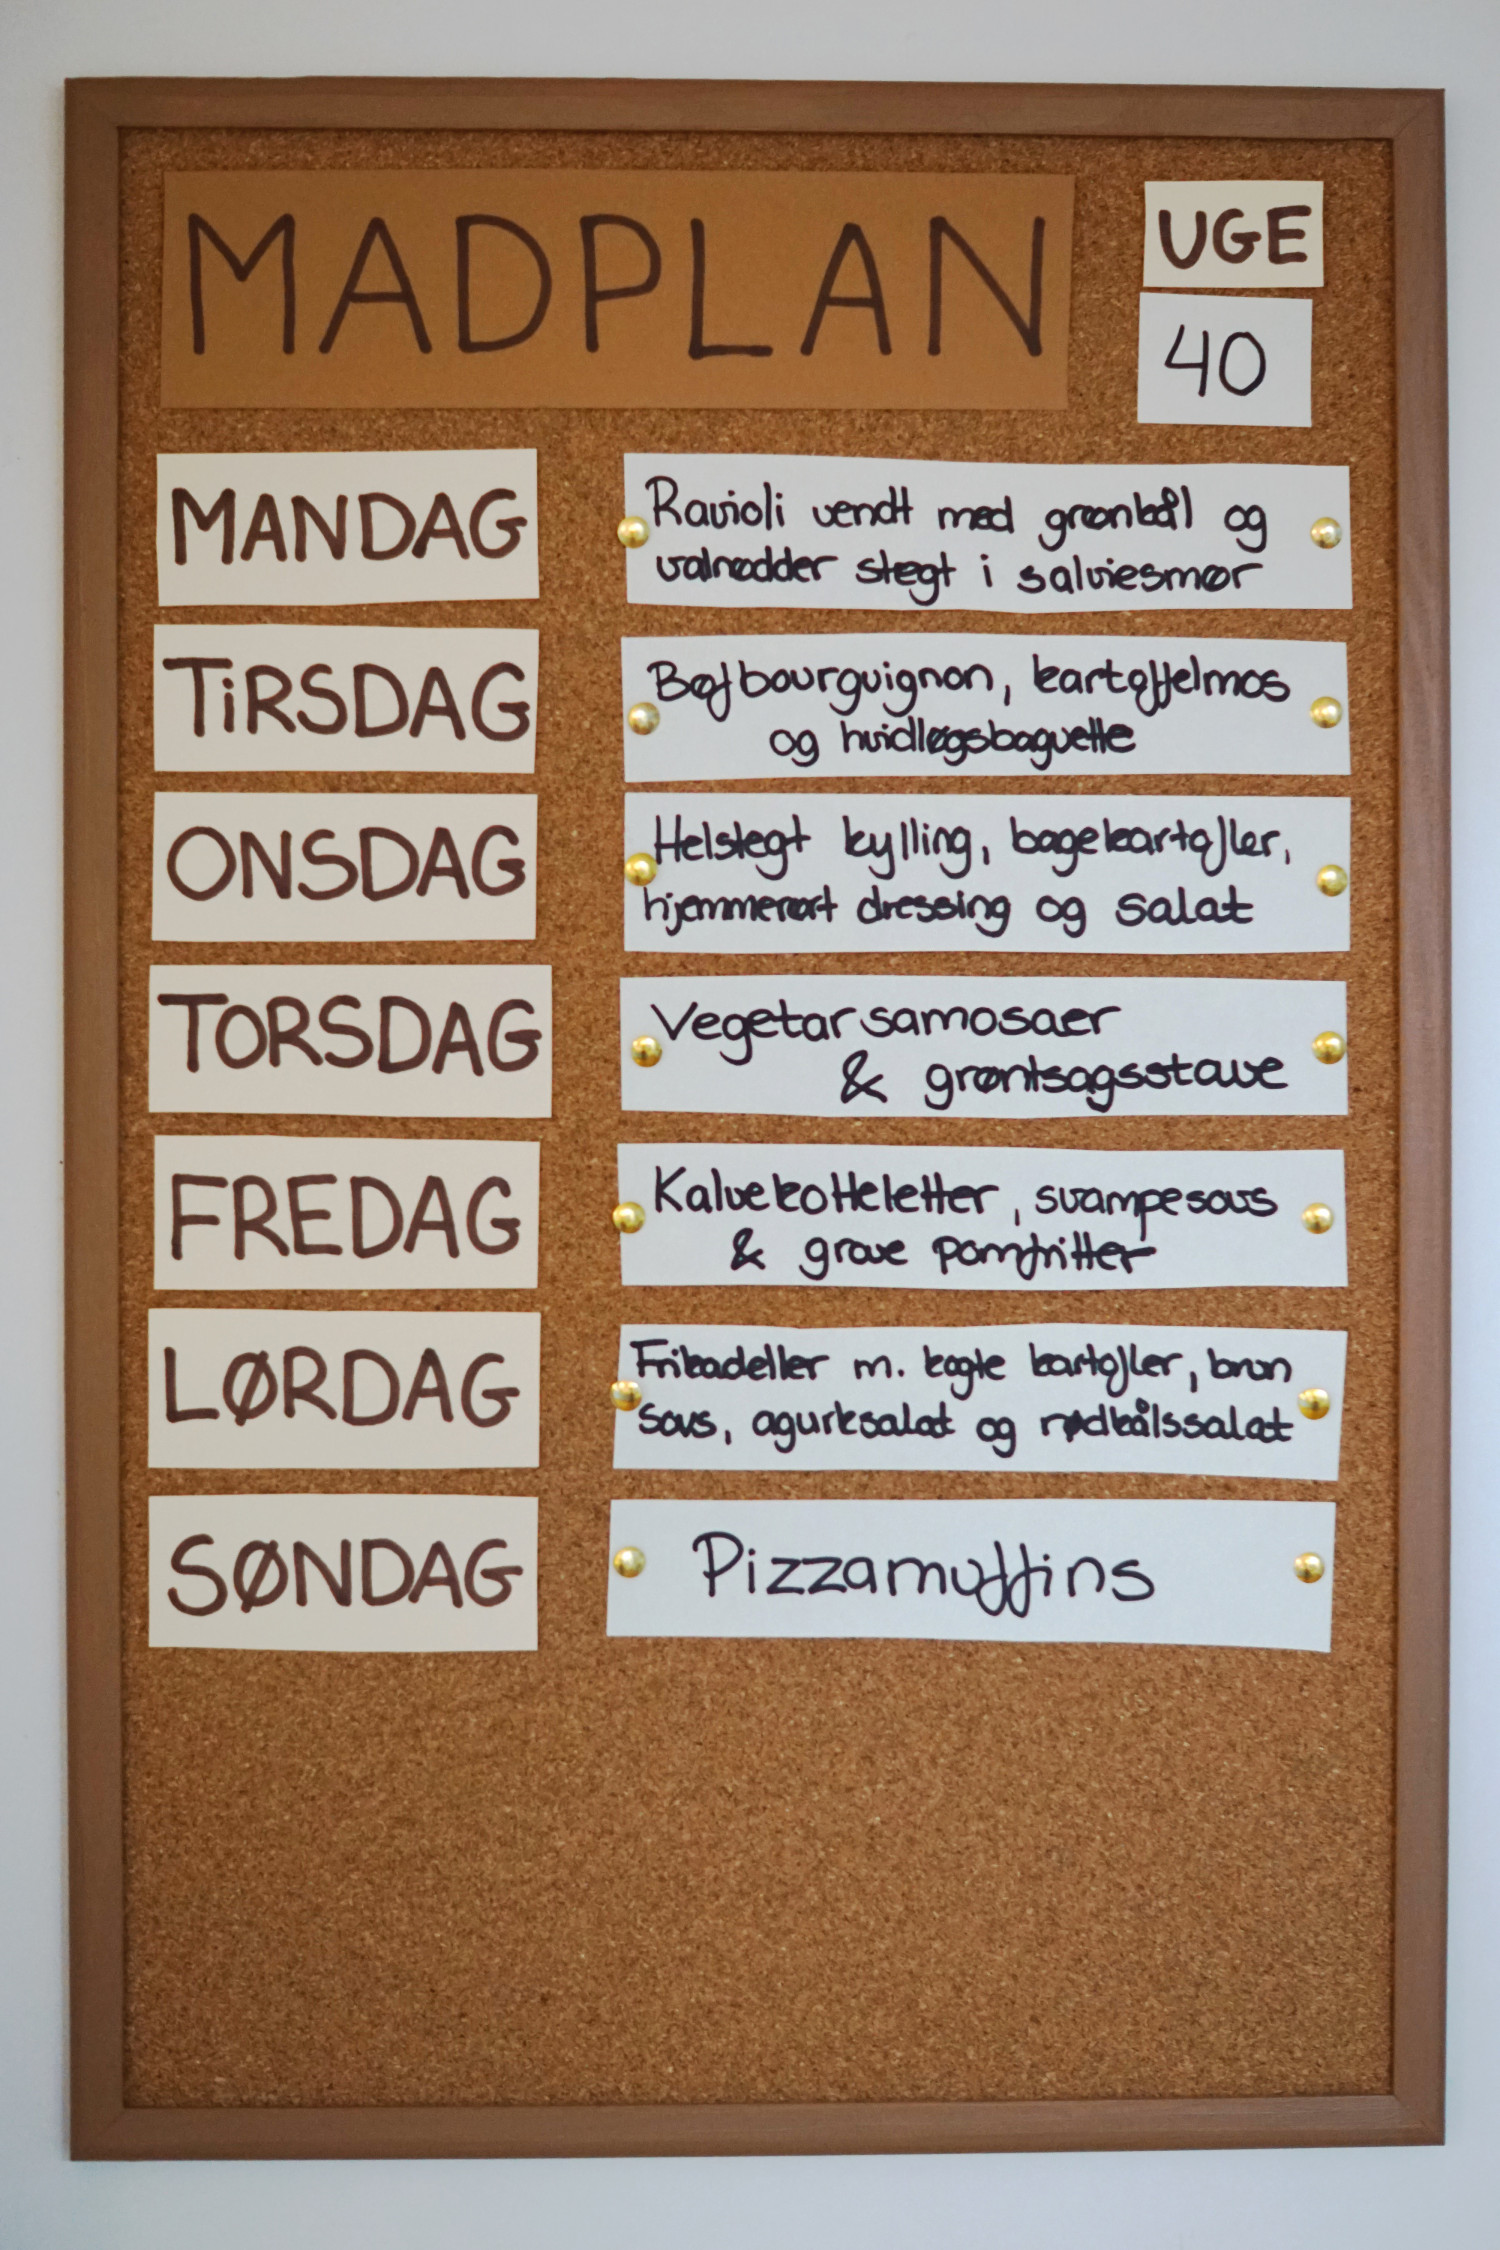 MADPLAN
UGE
40
MANDAG
Ravioli vendt med grønkål og
valnødder stegt i salviesmør
TiRSDAG
Bøfbourguignon, kartoffelmos
og hvidløgsbaguette
ONSDAG
Helstegt kylling, bagekartofler,
hjemmerørt dressing og salat
TORSDAG
Vegetarsamosaer
& grøntsagsstave
FREDAG
Kalvekotteletter, svampesovs
& grove pomfritter
LØRDAG
Frikadeller m. kogte kartofler, brun
sovs, agurksalat og rødkålssalat
SØNDAG
Pizzamuffins